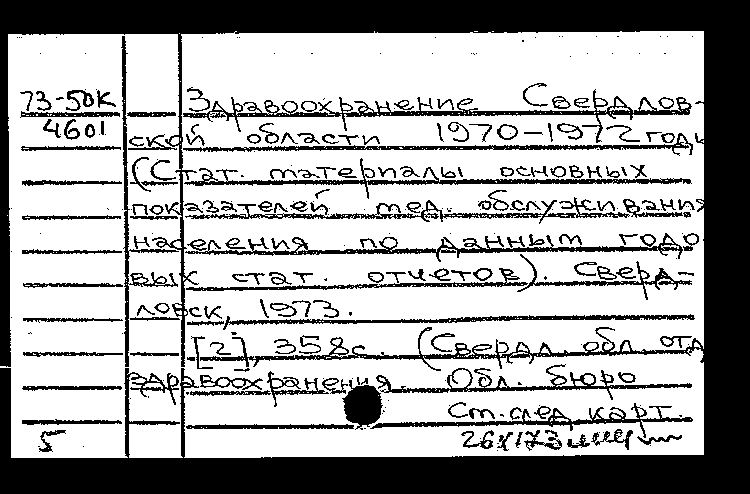 73-50К
4601
Здравоохранение Свердлов-
ской области 1970-1972 годы
(Стат. материалы основных
показателей мед. обслуживания
населения по данным годо
вых стат. отчетов). Сверд-
ловск, 1973.
[2], 358с. (Свердл. обл. отд
здравоохранения. Обл. бюро
См. след. карт.
5
26х173